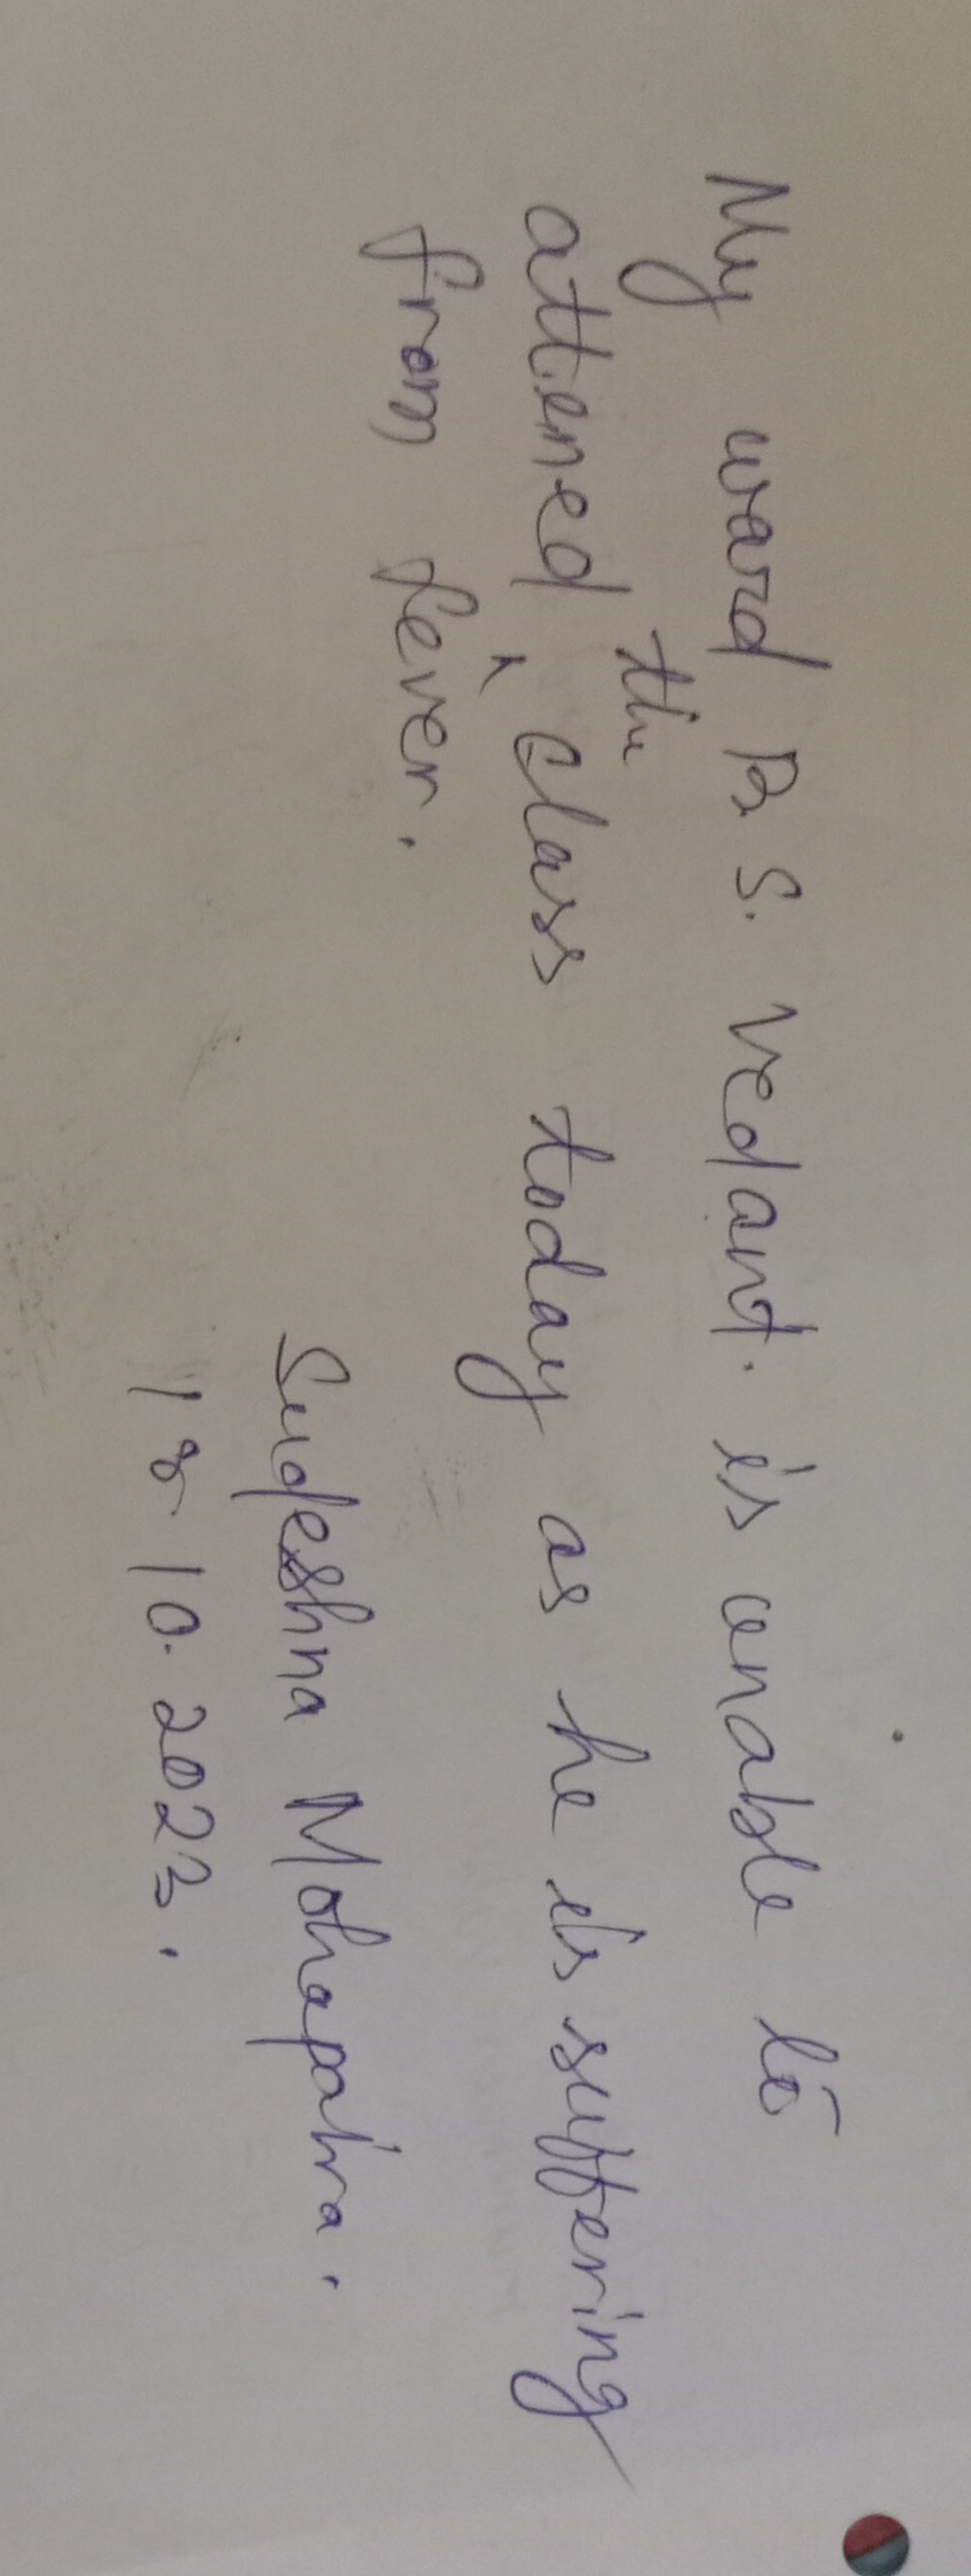 My ward B. S. Vedant. is unable to
attened the class today as he is suffering
from fever.
Sudeshna Mohapatra.
18 10. 2023.